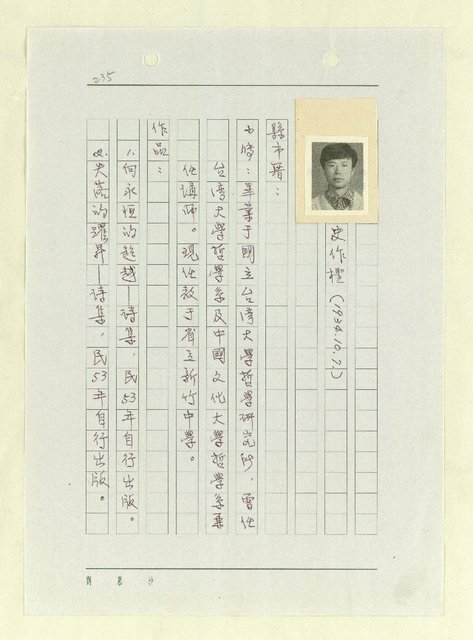 235
史作檉（1934.10.7.）
縣市署：
小傳：畢業于國立台湾大學哲學研究所，曾任
台湾大學哲學系及中國文化大學哲學系兼
任講師。現任教于省立新竹中學。
作品：
1.向永恒的超越—詩集，民53年自行出版。
2.失落的躍昇—詩集，民53年自行出版。
劉慕沙